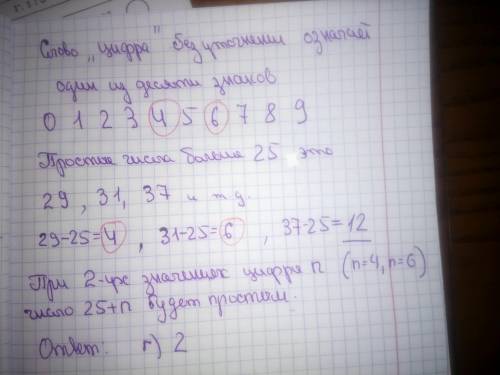 Слово "цифра" без уточнений означает
один из десяти знаков
0 1 2 3 4 5 6 7 8 9
Простые числа больше 25 это
29, 31, 37 и т.д.
29-25=4, 31-25=6, 37-25=12
При 2-ух значениях цифры n (n=4, n=6)
число 25+n будет простым.
Ответ: г) 2